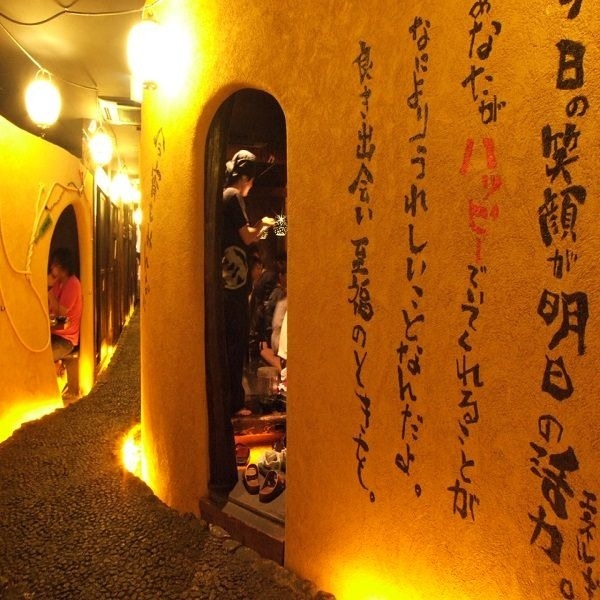 今日の笑顔が明日の活力。
エネルギー
あなたがハッピーでいてくれることが
なによりうれしいことなんだよ。
良き出会い 至福のときを。